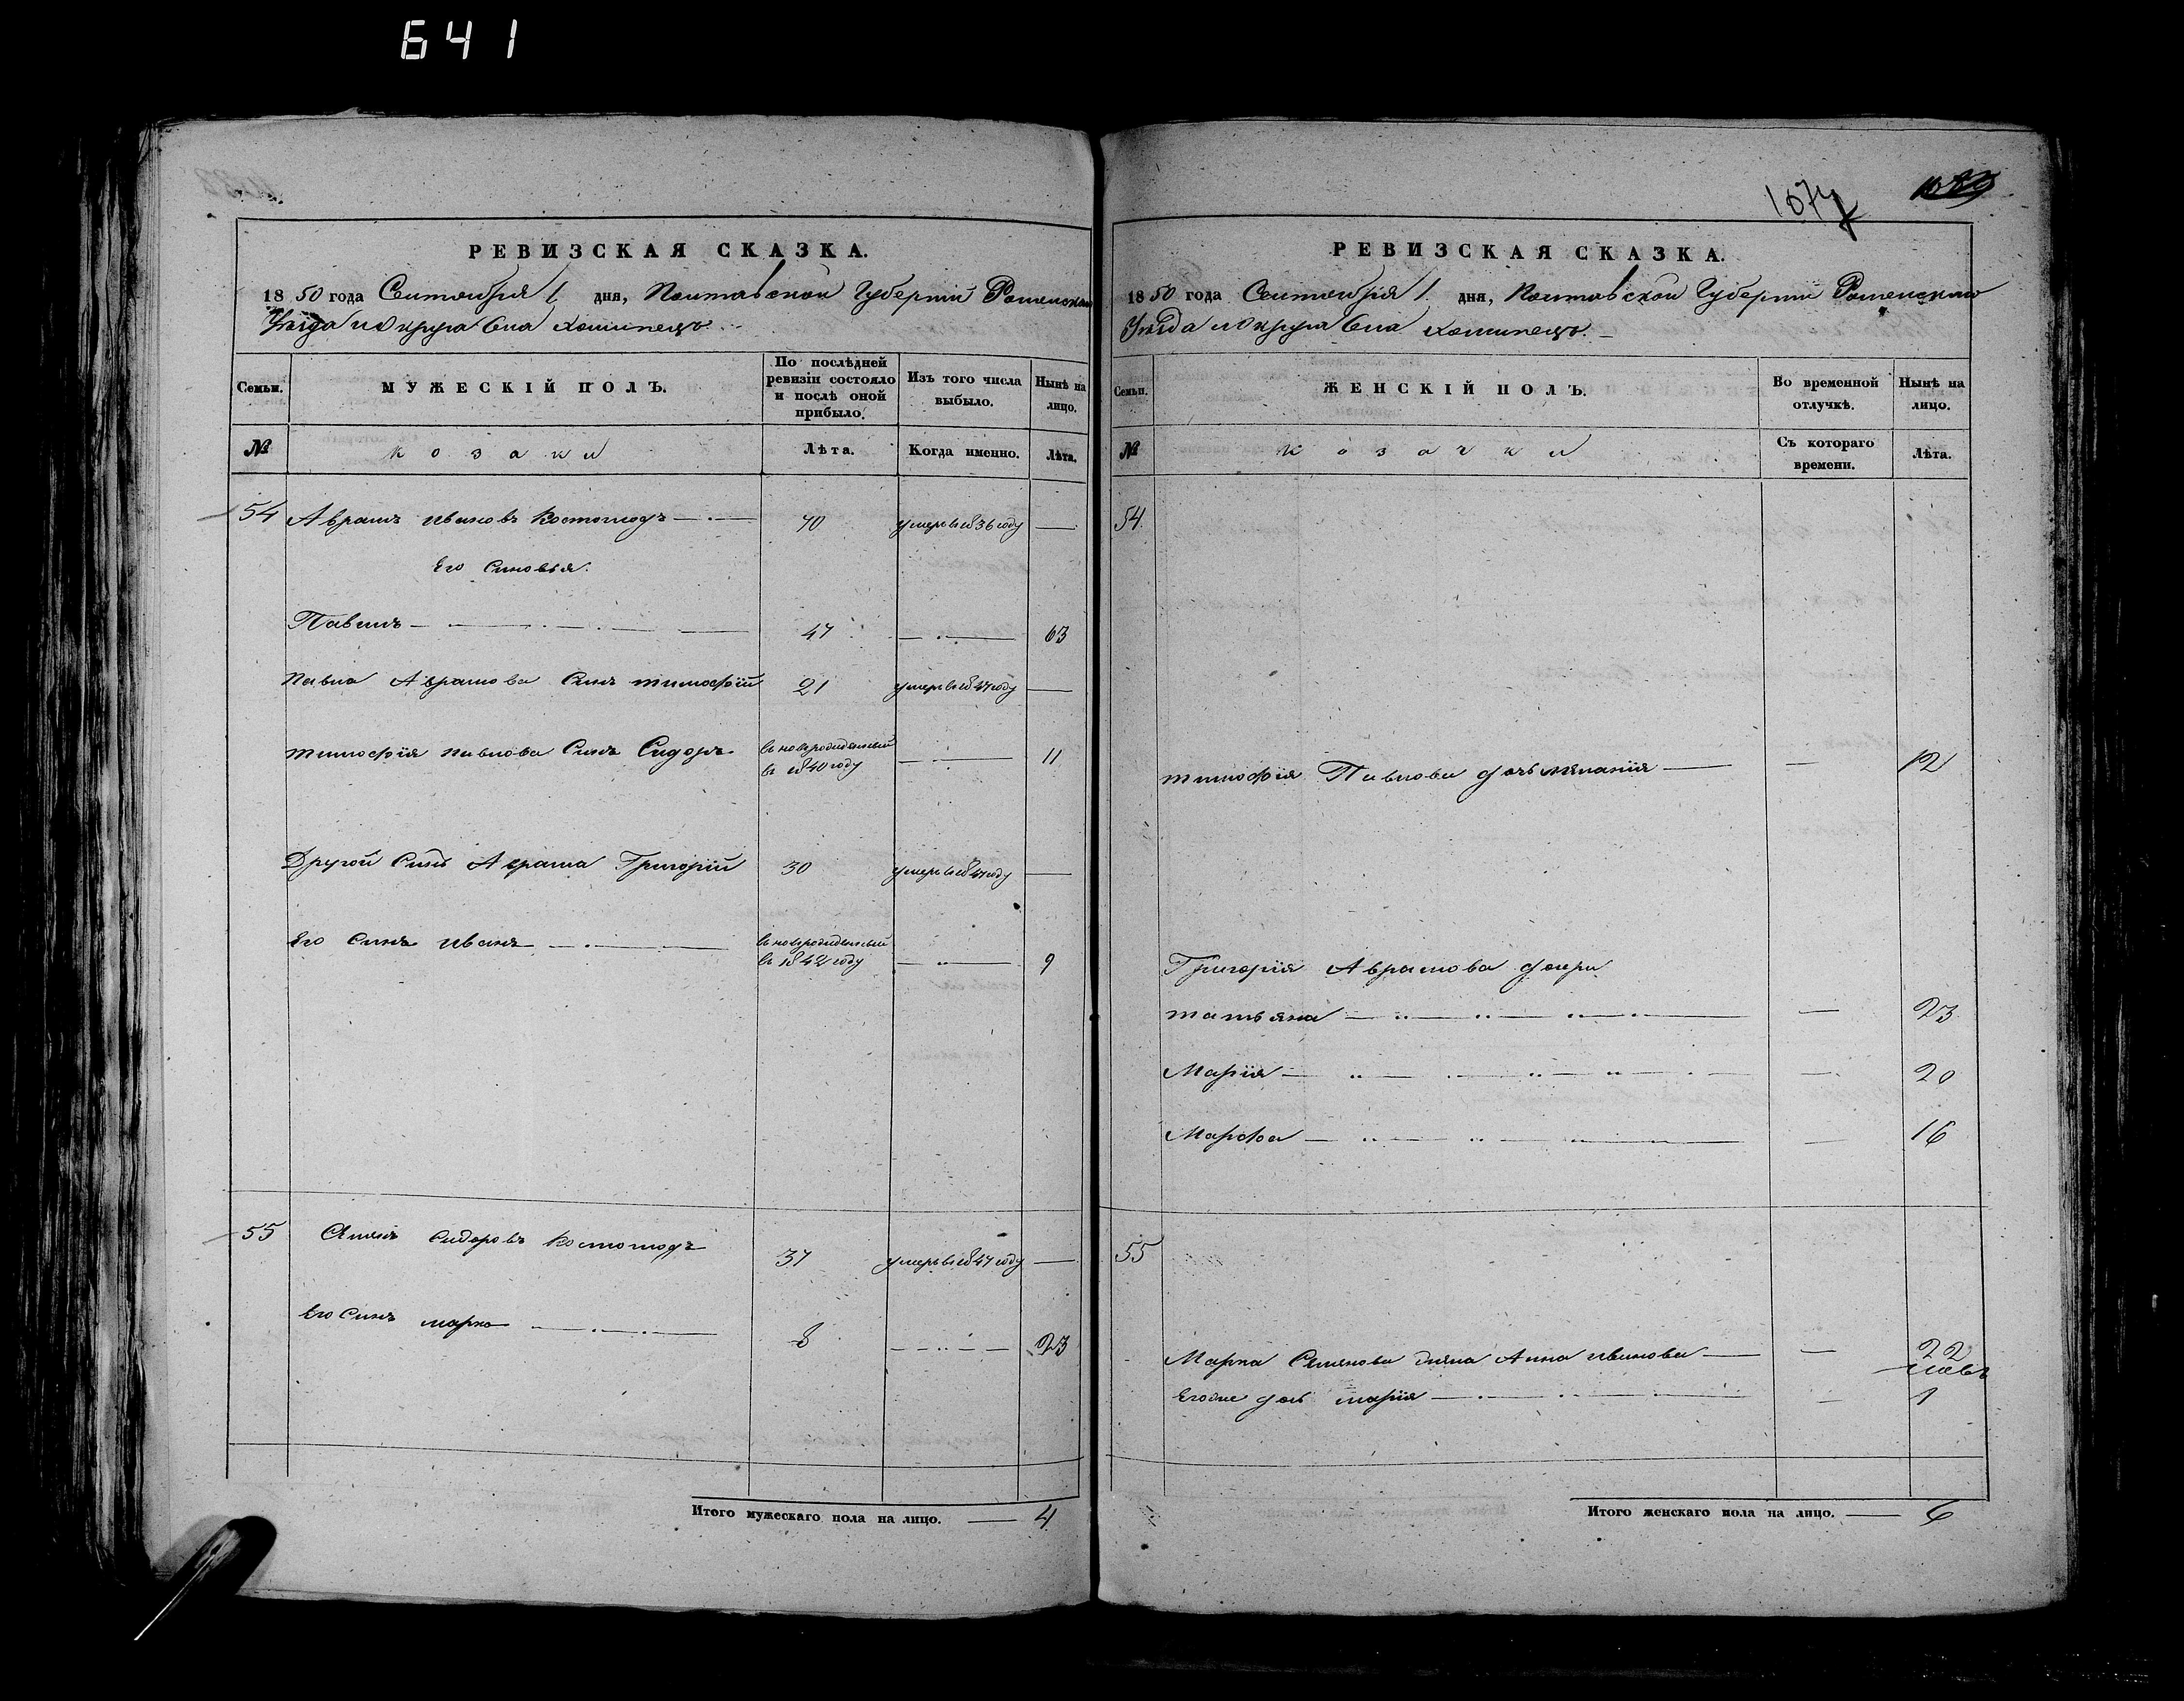 641
1074
1089
РЕВИЗСКАЯ СКАЗКА.
1850 года Сентября 1 дня, Полтавской Губерніи Роменскаго
Уѣзда и Округа Села
МУЖЕСКІЙ ПОЛЪ.
Семьи.
По послѣдней
ревизіи состояло
и послѣ оной
прибыло.
Изъ того числа
выбыло.
Нынѣ на
лицо.
№
козаки
Лѣта.
Когда именно.
Лѣта.
54 Аврамъ Ивановъ Костоглодъ — 70 умеръ въ 1836 году —
Его Синовья.
Павилъ — 47 — 63
Павла Аврамова Синъ тимофѣй 21 умеръ въ 1847 году —
тимофѣя павлова Синъ Сидоръ
въ 1840 году — 11
Другой Синъ Аврама Григорій 30 умеръ въ 1847 году —
Его Синъ Иванъ
въ 1842 году — 9
55 Сидоровъ Костоглодъ 37 умеръ въ 1847 году —
Его Синъ марко — 8 — 23
Итого мужескаго пола на лицо. — 4
РЕВИЗСКАЯ СКАЗКА.
1850 года Сентября 1 дня, Полтавской Губерніи Роменскаго
Уѣзда и Округа Села
Семьи.
ЖЕНСКІЙ ПОЛЪ.
Во временной
отлучкѣ.
Нынѣ на
лицо.
№
козачки
Съ котораго
времени.
Лѣта.
54
тимофѣя Павлова дочь — — 12
Григорія Аврамова дочери
татьяна — — 23
Марія — — 20
Марфа — — 16
55
Марка Семенова жена Анна Иванова — — 22
Его же дочь марія — — 1
Итого женскаго пола на лицо. — 6